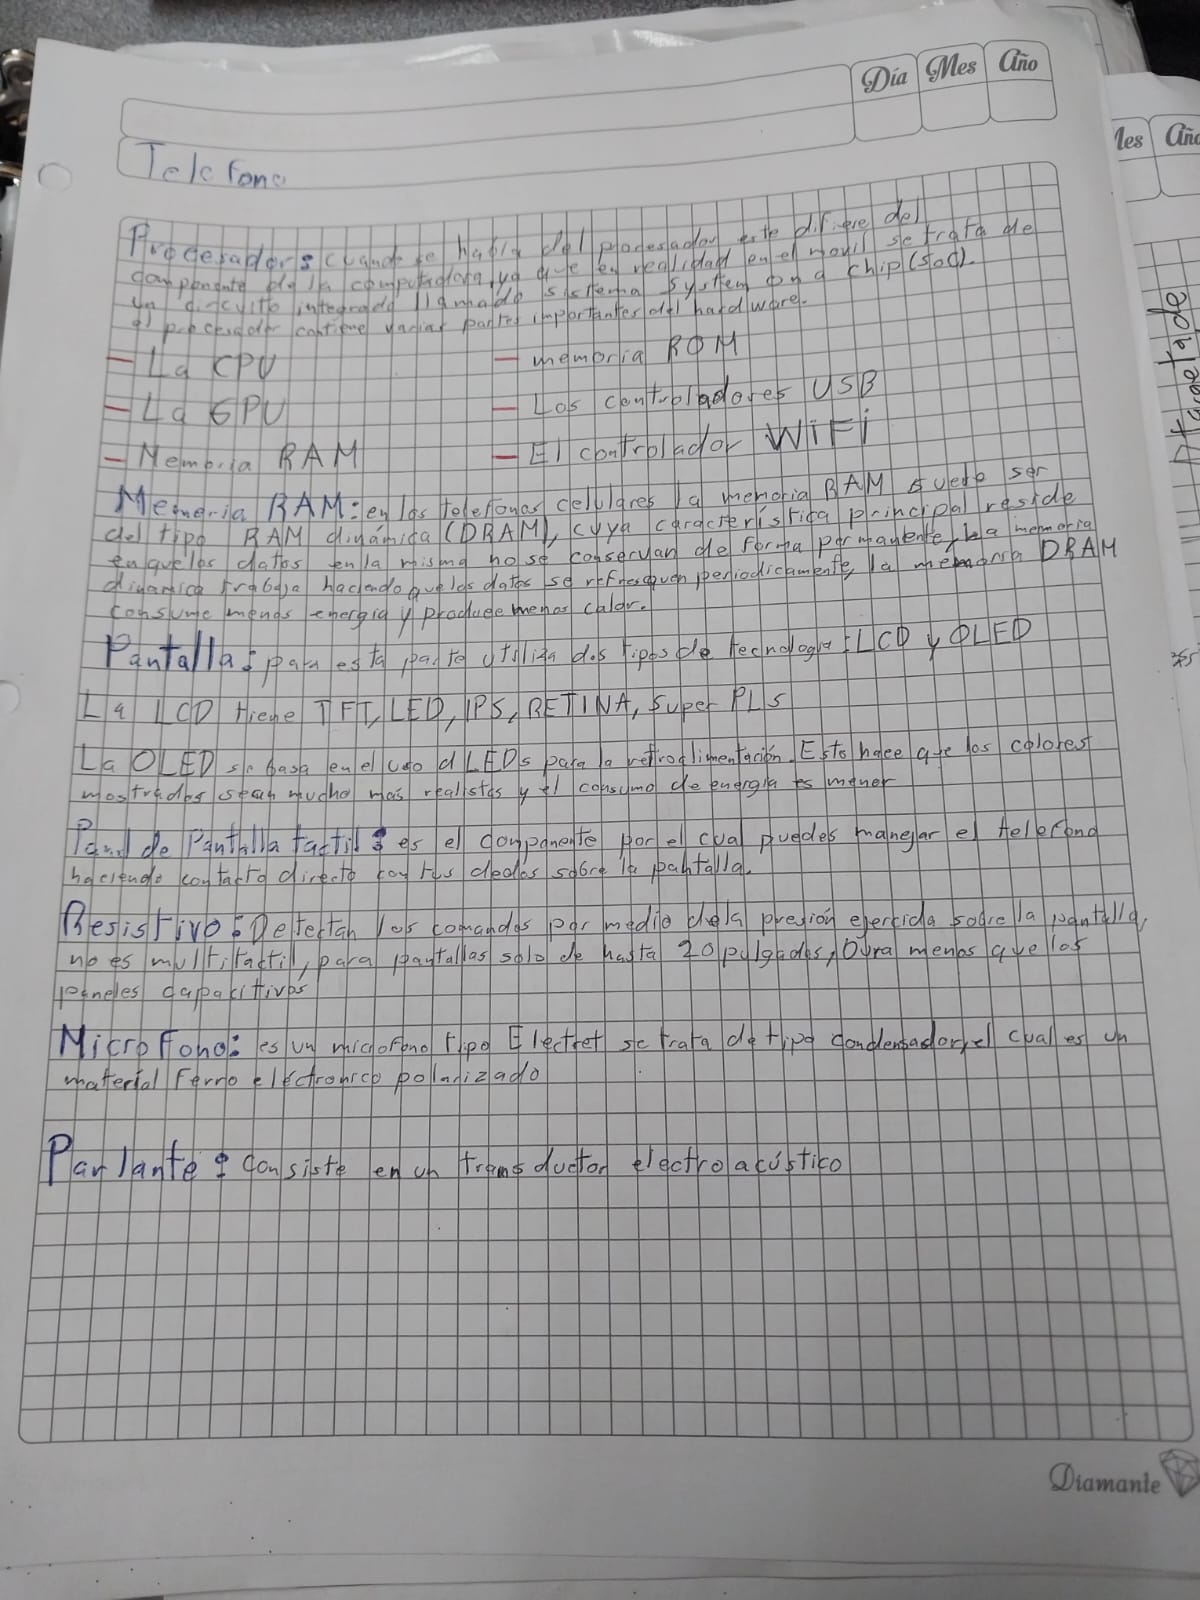 Día Mes Año
Telefono
Procesador: cuando se habla del procesador este difiere del
componente de la computadora, ya que en realidad en el movil se trata de
un circuito integrado llamado sistema system on a chip (SoC).
el procesador contiene varias partes importantes del hardware.
- La CPU
- memoria ROM
- La GPU
- Los controladores USB
- Memoria RAM
- El controlador WiFi
Memoria RAM: en los telefonos celulares la memoria RAM suele ser
del tipo RAM dinámica (DRAM), cuya característica principal reside
en que los datos en la misma no se conservan de forma permanente, La memoria
dinamica trabaja haciendo que los datos se refresquen periodicamente, la memoria DRAM
consume menos energia y produce menos calor.
Pantalla: para esta parte utiliza dos tipos de tecnologia: LCD y OLED
La LCD tiene TFT, LED, IPS, RETINA, Super PLS
La OLED se basa en el uso d LEDs para la retroalimentación. Esto hace que los colores
mostrados sean mucho más realistas y el consumo de energía es menor
Panel de Pantalla tactil: es el componente por el cual puedes manejar el telefono
haciendo contacto directo con tus dedos sobre la pantalla.
Resistivo: Detectan los comandos por medio de la presión ejercida sobre la pantalla,
no es multitactil, para pantallas solo de hasta 20 pulgadas, Dura menos que los
paneles capacitivos
Microfono: es un microfono tipo Electret se trata de tipo condensador, el cual es un
material Ferro eléctronico polarizado
Parlante: consiste en un transductor electroacústico
Diamante
Mes Año